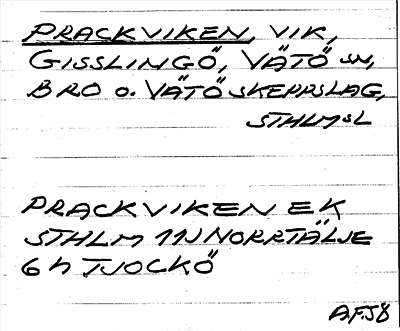 PRACKVIKEN, VIK,
GISSLINGÖ, VÄTÖ SN,
BRO O. VÄTÖ SKEPPSLAG,
STHLMSL
PRACKVIKEN EK
STHLM 11J NORRTÄLJE
6 h TJOCKÖ
A.F.58